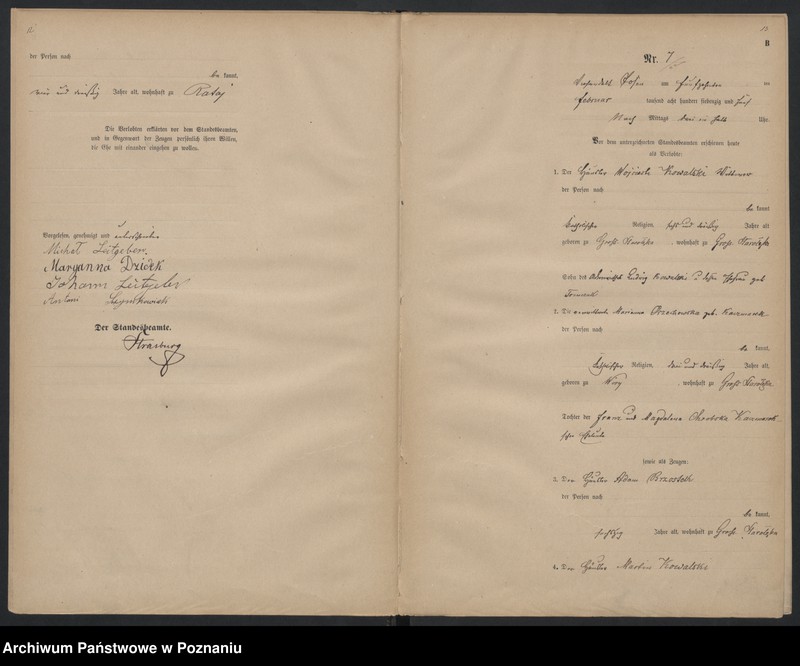 der Person nach
be kannt,
vier und dreißig Jahre alt, wohnhaft zu Rataj
Die Verlobten erklärten vor dem Standesbeamten,
und in Gegenwart der Zeugen persönlich ihren Willen,
die Ehe mit einander eingehen zu wollen.
Vorgelesen, genehmigt und unterschrieben
Michał Leitgeber.
Maryanna Dziółk
Johann Leitgeber
Antoni
Der Standesbeamte.
Strasburg
13
B
Nr. 7
Verhandelt Posen am fünfzehnten
Februar tausend acht hundert siebenzig und fünf
Nach Mittags drei ein halb Uhr.
Vor dem unterzeichneten Standesbeamten erschienen heute
als Verlobte:
1. Der Häusler Wojciech Kowalski Wittwer
der Person nach
be kannt
katholischer Religion, und dreißig Jahre alt
geboren zu Groß , wohnhaft zu Groß Starołęka
Sohn des Ludwig Kowalski u dessen Ehefrau geb
2. Die Mariana Orzechowska geb. Kaczmarek
der Person nach
be kannt,
katholischer Religion, drei und dreißig Jahre alt,
geboren zu Wiry , wohnhaft zu Groß Starołęka
Tochter der Franz und Magdalena
Eheleute
sowie als Zeugen:
3. Der Häusler Adam
der Person nach
be kannt,
sechszig Jahre alt, wohnhaft zu Groß Starołęka
4. Der Häusler Martin Kowalski
Archiwum Państwowe w Poznaniu